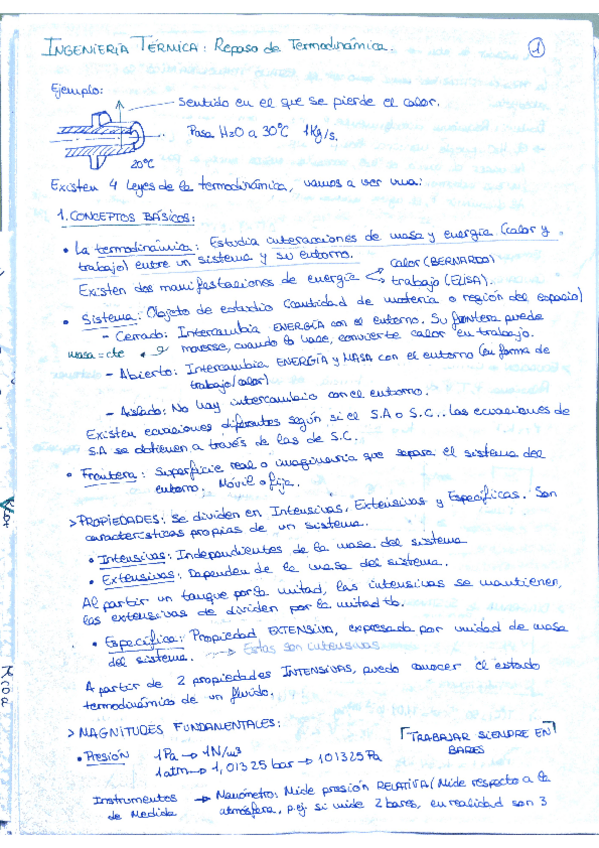 INGENIERÍA TÉRMICA: Repaso de Termodinámica. 1
Ejemplo:
Sentido en el que se pierde el calor.
Pasa H2O a 30ºC 1Kg/s.
20ºC
Existen 4 leyes de la termodinámica, vamos a ver una:
1. CONCEPTOS BÁSICOS:
• La termodinámica: Estudia interacciones de masa y energía (calor y
trabajo) entre un sistema y su entorno.
Existen dos manifestaciones de energía calor (BERNARDO)
trabajo (ELISA).
• Sistema: Objeto de estudio (cantidad de materia o región del espacio)
- Cerrado: Intercambia ENERGÍA con el entorno. Su frontera puede
masa=cte moverse, cuando lo hace, convierte calor en trabajo.
- Abierto: Intercambia ENERGÍA y MASA con el entorno (en forma de
trabajo/calor)
- Aislado: No hay intercambio con el entorno.
Existen ecuaciones diferentes según si el S.A o S.C.. Las ecuaciones de
S.A se obtienen a través de las de S.C.
• Frontera: Superficie real o imaginaria que separa el sistema del
entorno. Móvil o fija.
> PROPIEDADES: Se dividen en Intensivas, Extensivas y Específicas. Son
características propias de un sistema.
• Intensivas: Independientes de la masa del sistema
• Extensivas: Dependen de la masa del sistema.
Al partir un tanque por la mitad, las intensivas se mantienen,
las extensivas de dividen por la mitad tb.
• Específica: Propiedad EXTENSIVA, expresada por unidad de masa
del sistema. → Estas son intensivas
A partir de 2 propiedades INTENSIVAS, puedo conocer el estado
termodinámico de un fluido.
> MAGNITUDES FUNDAMENTALES:
• Presión 1Pa → 1N/m² TRABAJAR SIEMPRE EN
1atm → 1,01325 bar → 101325 Pa BARES
Instrumentos → Manómetro: Mide presión RELATIVA (Mide respecto a la
de Medida atmósfera, p.ej. si mide 2 bares, en realidad son 3